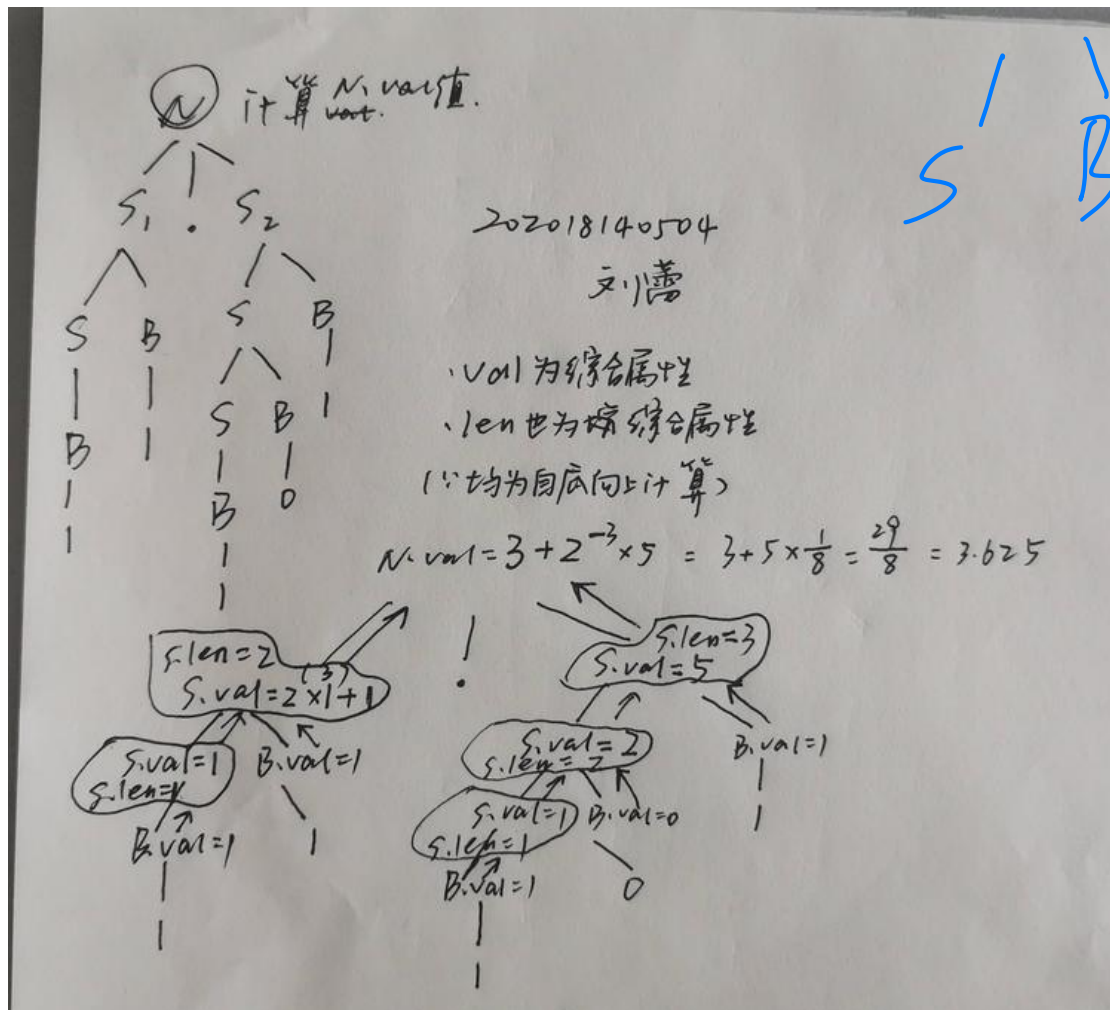 N 计算 N.val值.
S₁ . S₂
S B S B
B 1 S B 1
1 B 0
1
202018140504
刘蕾
.val 为综合属性
.len也为综合属性
(∵均为自底向上计算)
N.val=3+2⁻³×5 = 3+5×1/8=29/8 = 3.625
.
S.len=2
S.val=2×1+1 (3)
S.len=3
S.val=5
S.val=1
S.len=1
B.val=1
S.val=2
S.len=2
B.val=1
B.val=1
1
S.val=1
S.len=1
B.val=0
1
1
B.val=1
0
1
S B